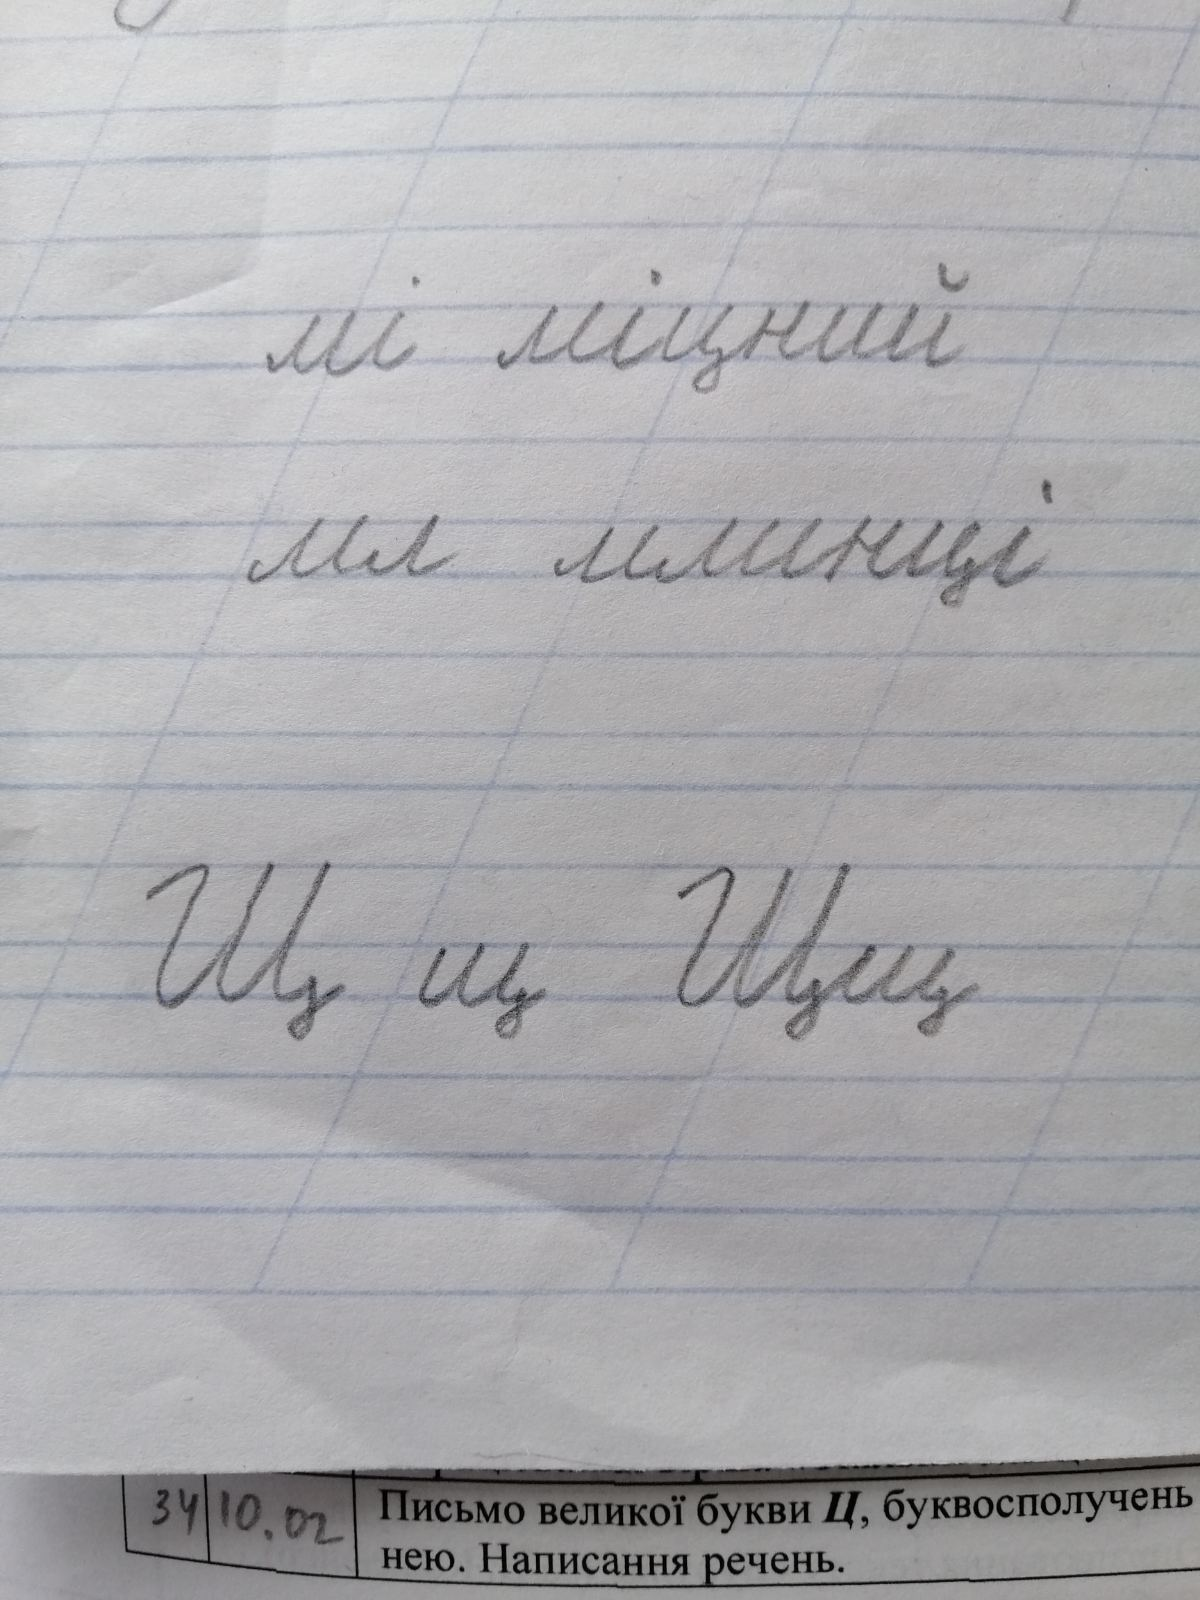 мі міцний
мл млинці
Щ щ Щщ
34 10.02 Письмо великої букви Ц, буквосполучень
нею. Написання речень.